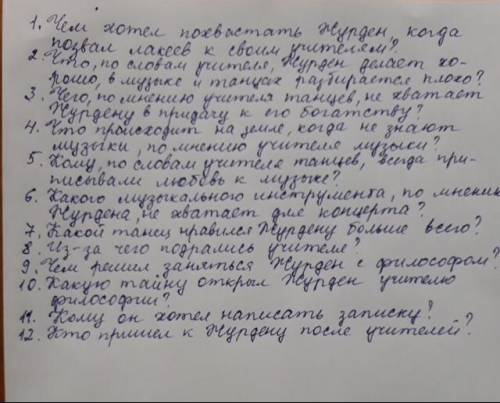 1. Чем хотел похвастать Журден, когда
позвал лакеев к своим учителям?
2. Что, по словам учителя, Журден делает хо-
рошо, в музыке и танцах разбирается плохо?
3. Чего, по мнению учителя танцев, не хватает
Журдену в придачу к его богатству?
4. Что происходит на земле, когда не знают
музыки, по мнению учителя музыки?
5. Кому, по словам учителя танцев, всегда при-
писывали любовь к музыке?
6. Какого музыкального инструмента, по мнению
Журдена, не хватает для концерта?
7. Какой танец нравился Журдену больше всего?
8. Из-за чего подрались учителя?
9. Чем решил заняться Журден с философом?
10. Какую тайну открыл Журден учителю
философии?
11. Кому он хотел написать записку?
12. Кто пришел к Журдену после учителей?